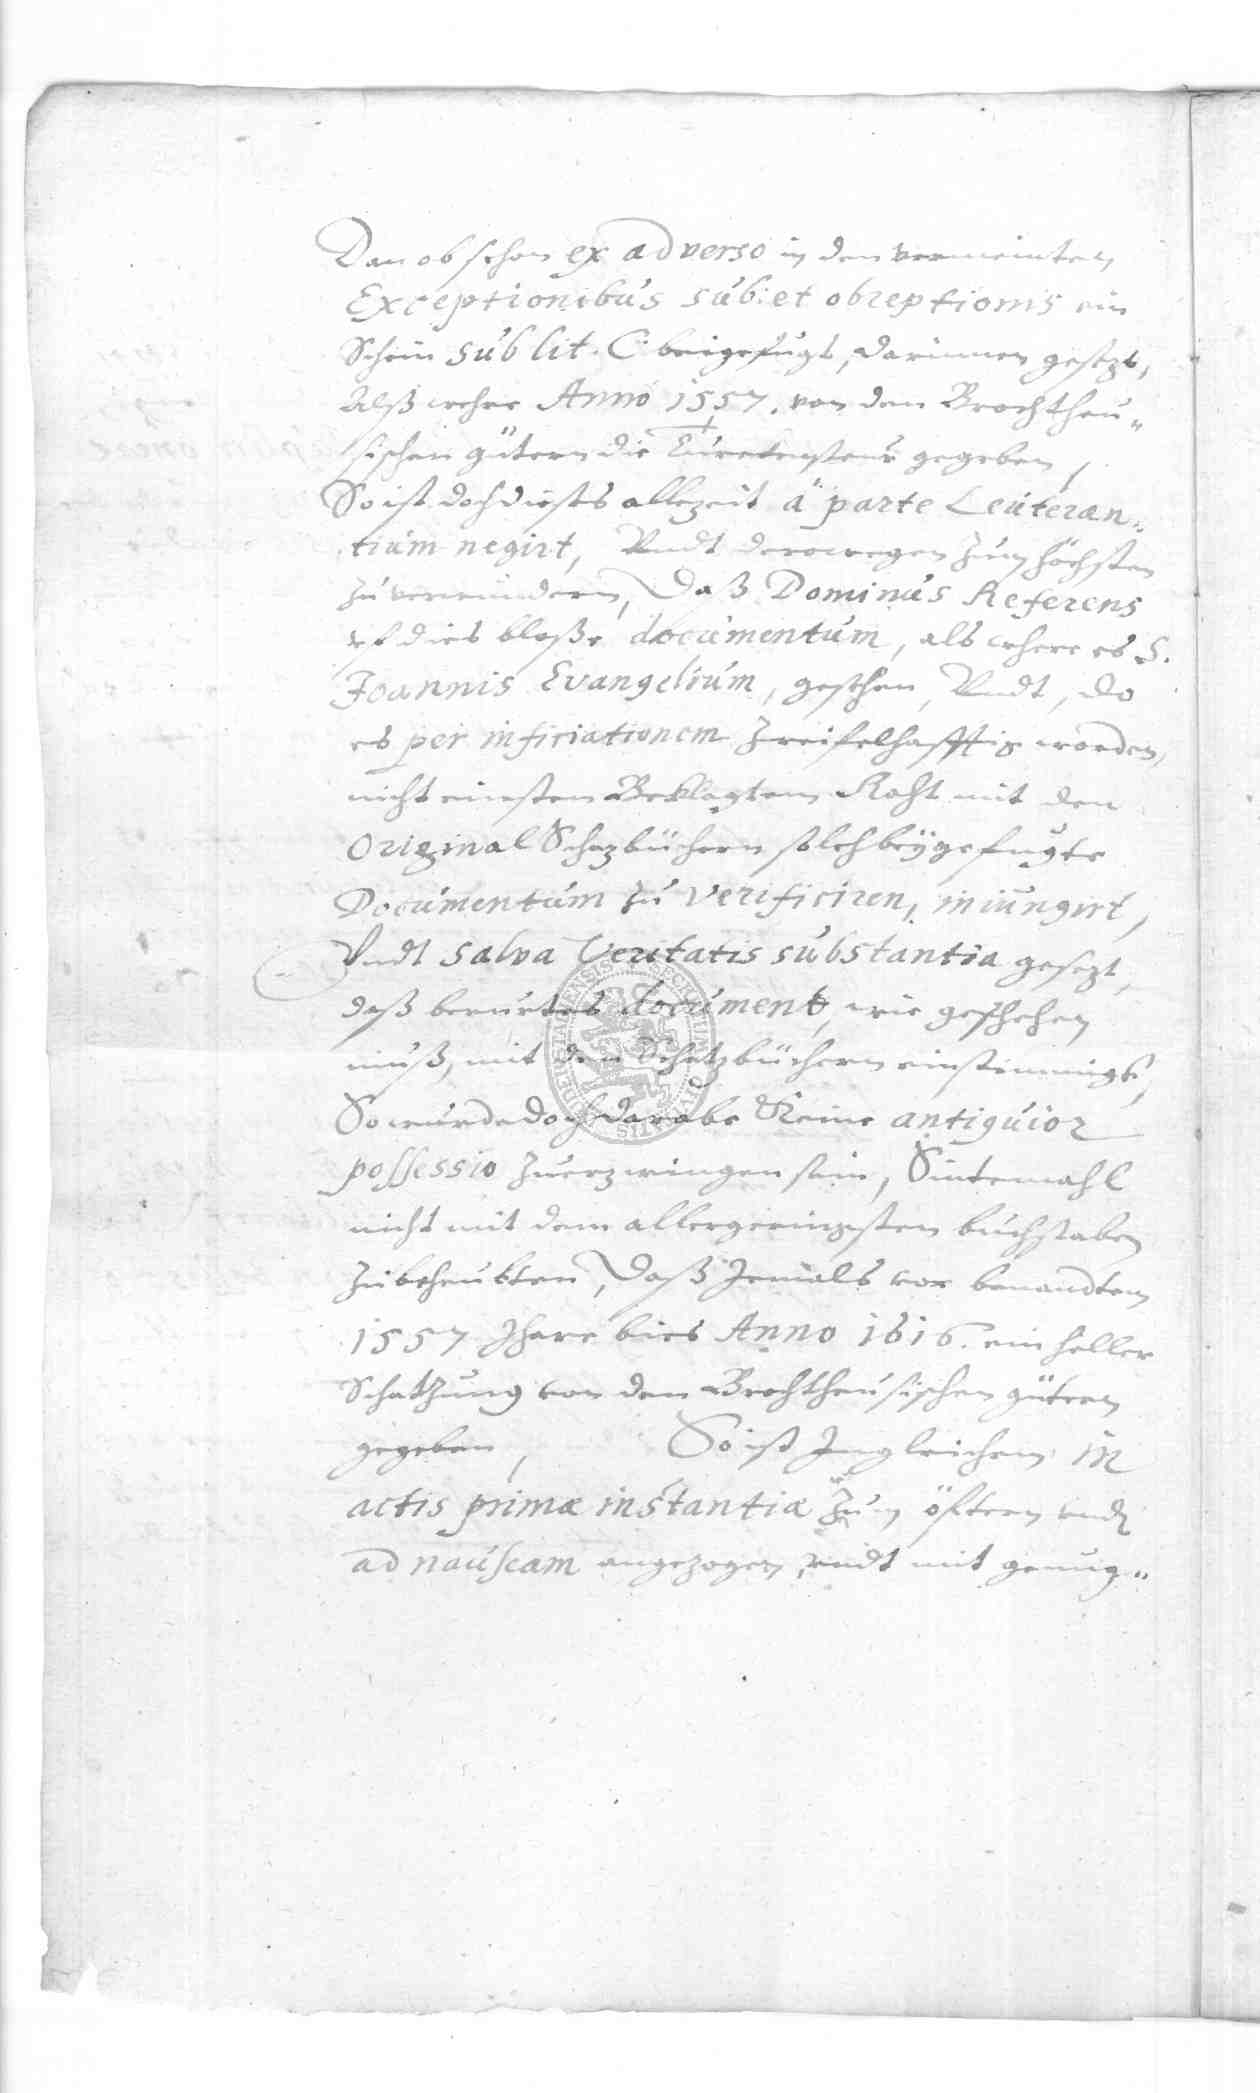 Dan ob schon ex adverso in den vermeinten
Exceptionibus sub: et obreptionis ein
Schein sub lit. C. beigefugt, darinnen gesetzt,
Alß wehre Anno 1557. von den Brochtheu„
sischen gütern die Türckensteur gegeben,
So ist doch dieses allezeit à parte Leuteran„
tium negirt, Undt derowegen zum höchsten
zu verwundern, Daß Dominus Referens
uf dies bloße documentum, als where es S.
Joannis Evangelium, gesehen, Undt, do
es per inficiationem zweifelhafftig worden,
nicht einsten Beklagtem Raht mit den
Original Schazbüchern solch beÿgefugte
Documentum zu verificiren, iniungirt,
Undt salva veritatis substantia gesezt,
daß berurtes document, wie geschehen
muß, mit den Schatzbüchern einstimmigt,
So wurde doch darabe Keine antiquior
possessio zu erzwingen sein, Sintemahl
nicht mit dem allergeringsten buchstaben
zubeheubten, Daß Jemals vor benandtem
1557 Jhare bies Anno 1616. ein heller
Schatzung von den Brochtheusischen gütern
gegeben, So ist Ingleichem in
actis primæ instantiæ zum öftern und
ad nauseam angezogen, undt mit genug„
SECR